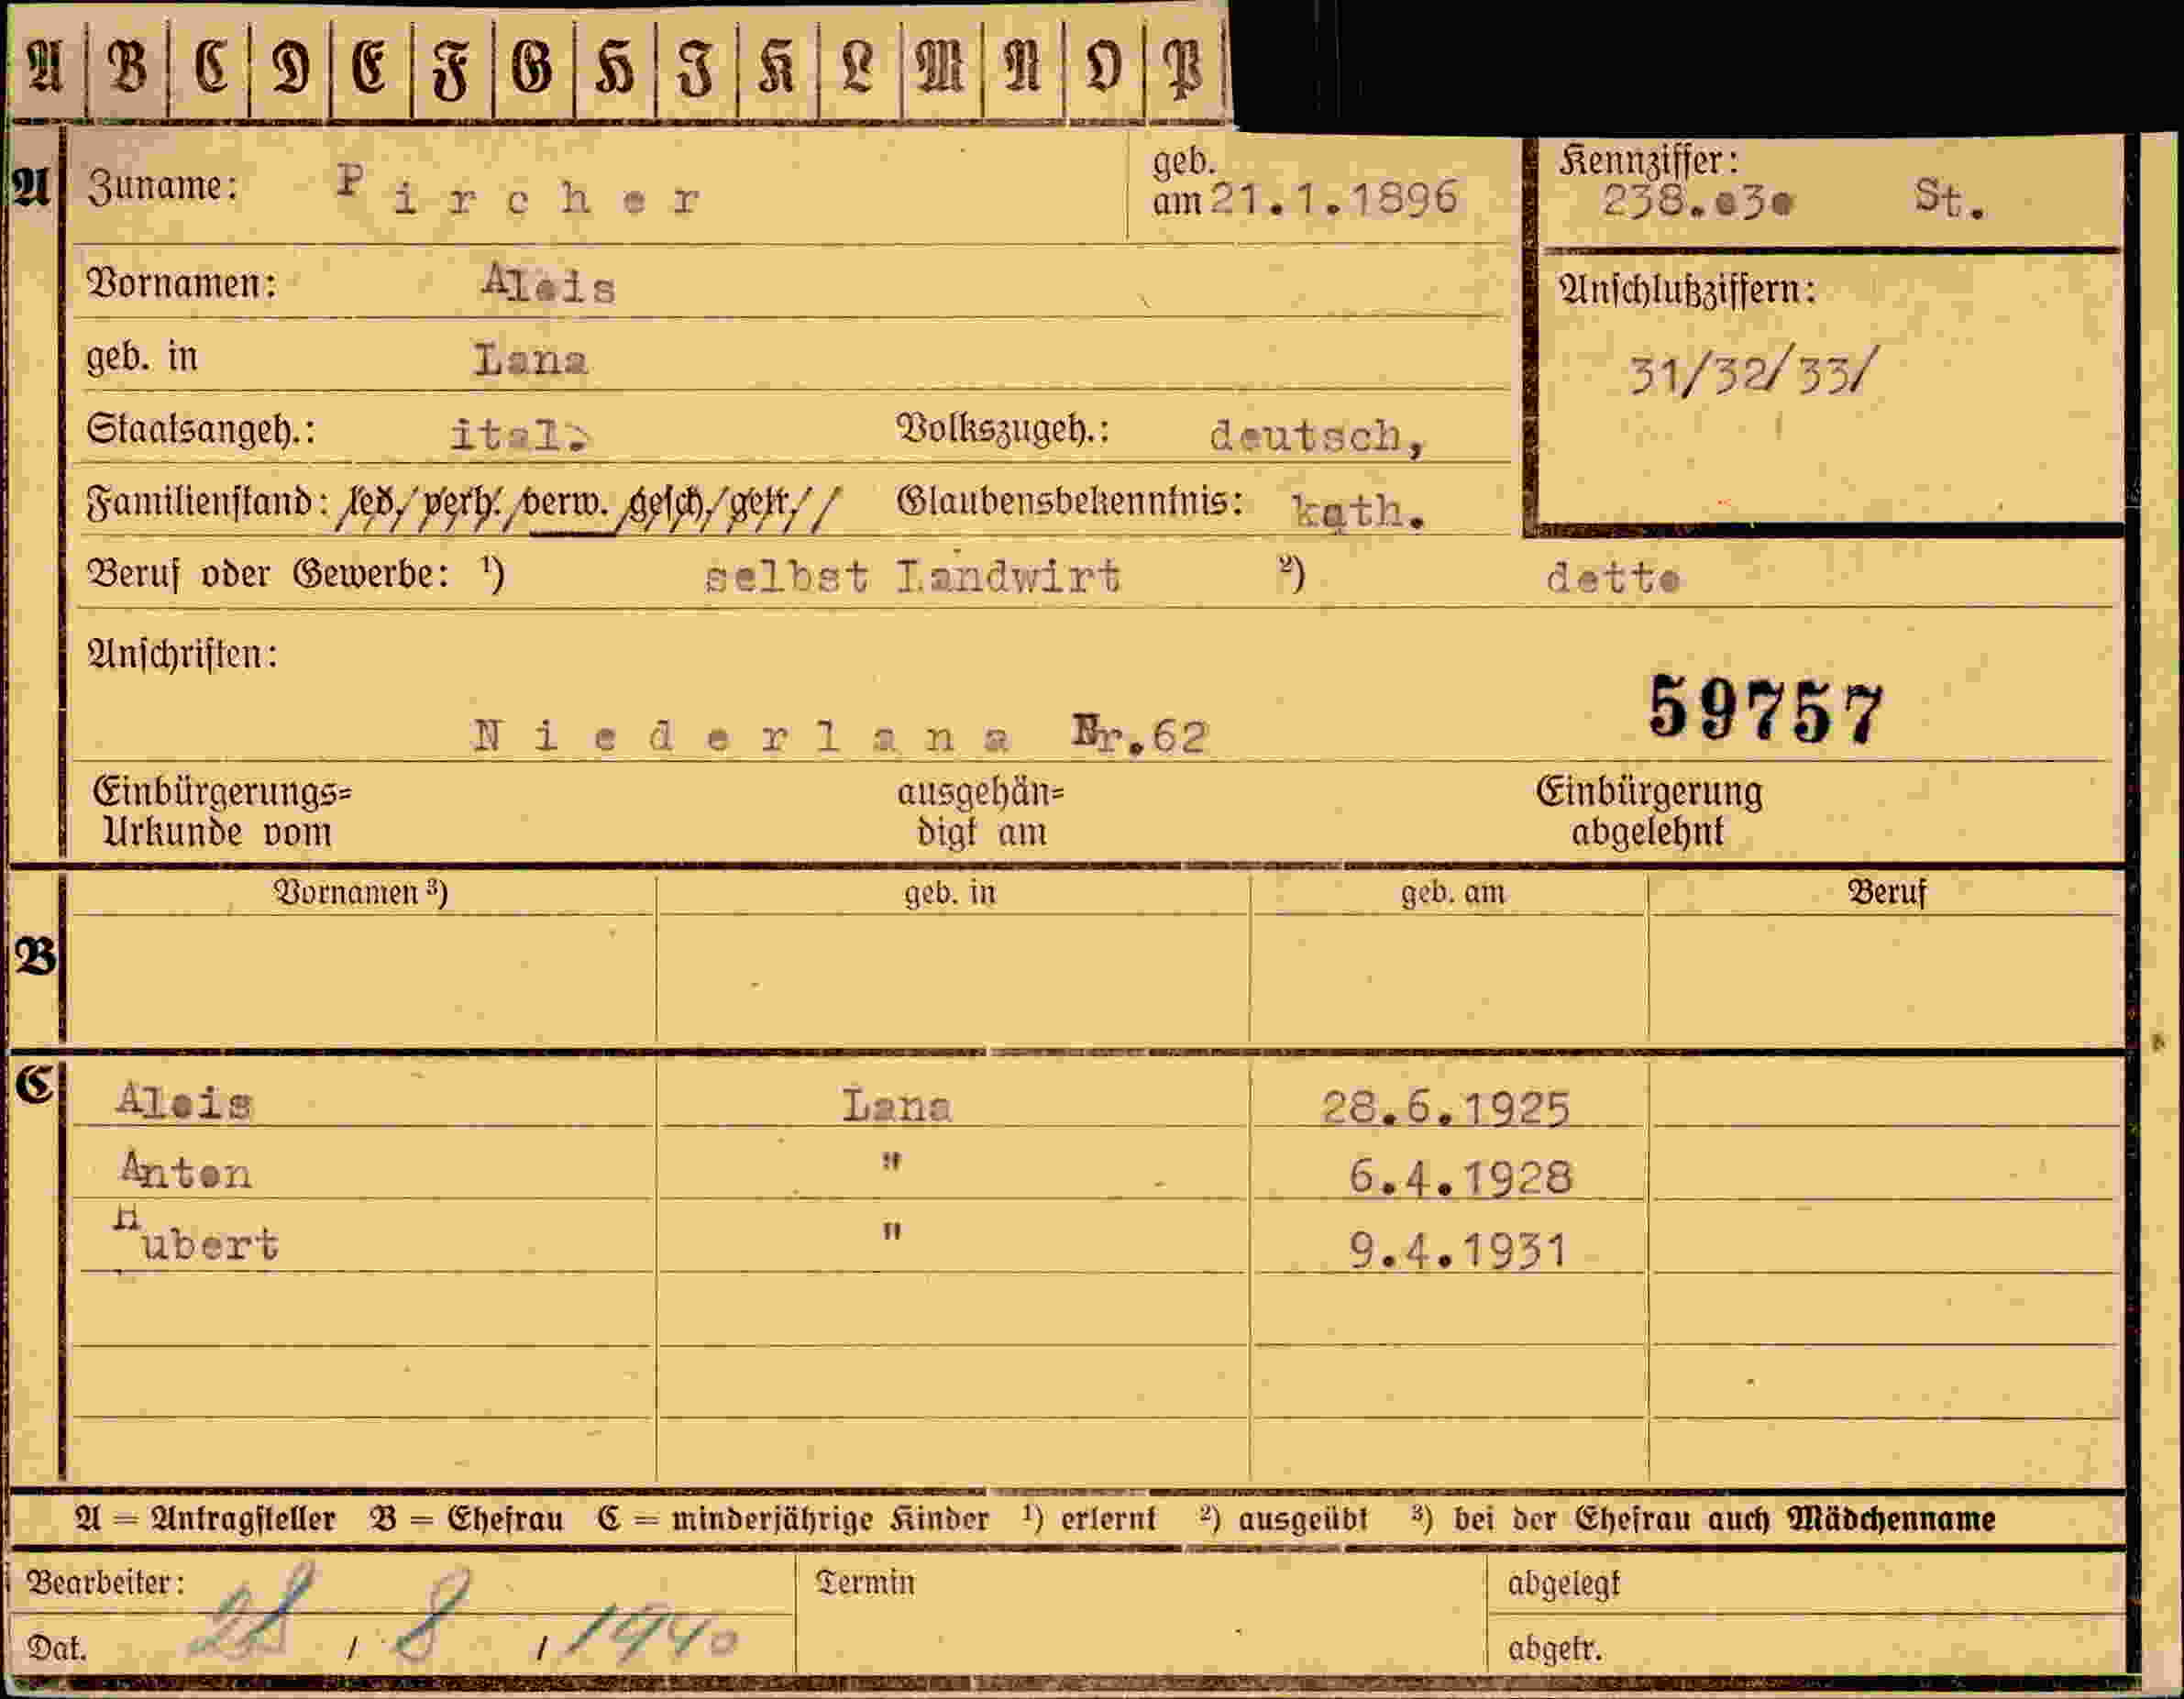 A B C D E F G H I K L M N O P
A Zuname: Pircher geb. am 21.1.1896 Kennziffer: 238.030 St.
Vornamen: Alois Anschlußziffern:
geb. in Lana 31/32/33/
Staatsangeh.: ital. Volkszugeh.: deutsch,
Familienstand: led./verh./verw. gesch/getr./ / Glaubensbekenntnis: kath.
Beruf oder Gewerbe: ¹) selbst Landwirt ²) detto
Anschriften:
59757
Niederlana Nr.62
Einbürgerungs= ausgehän= Einbürgerung
Urkunde vom digt am abgelehnt
Vornamen ³) geb. in geb. am Beruf
B
C Alois Lana 28.6.1925
Anton " 6.4.1928
Hubert " 9.4.1931
A = Antragsteller B = Ehefrau C = minderjährige Kinder ¹) erlernt ²) ausgeübt ³) bei der Ehefrau auch Mädchenname
Bearbeiter: Termin abgelegt
Dat. 28 / 8 / 1940 abgetr.